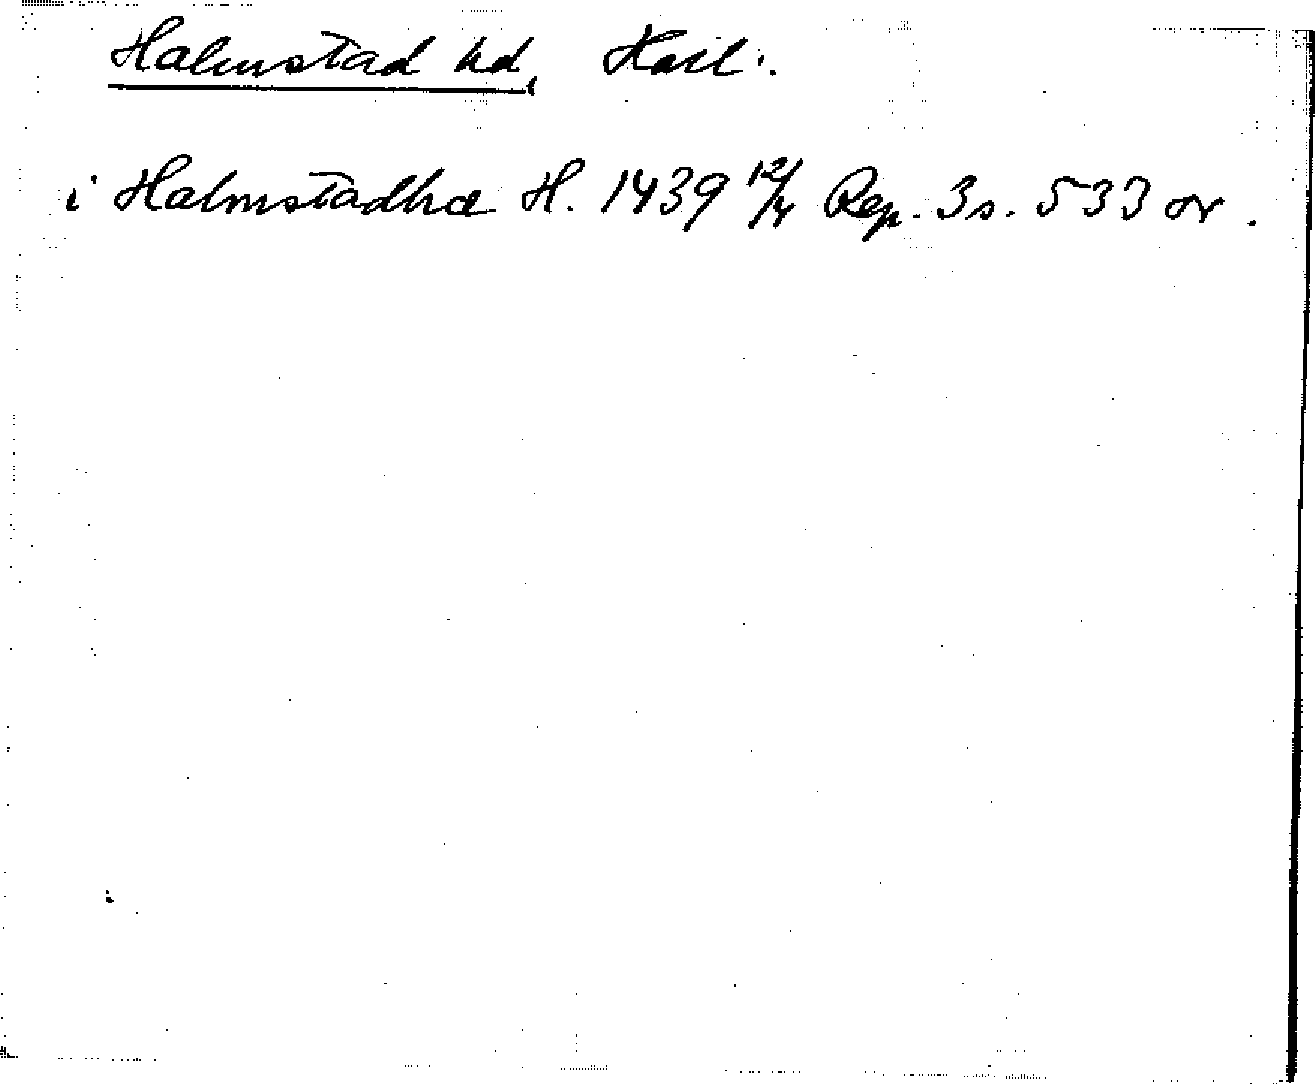 Halmstad hd, Hall.
i Halmstadhæ H. 1439 12/4 Rep. 3 s. 533 or.